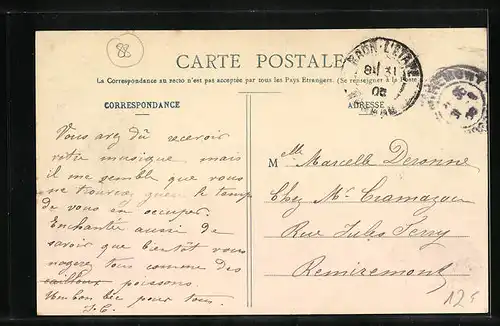 88
CARTE POSTALE
RAON-L'ETAPE
La Correspondance au recto n'est pas acceptée par tous les Pays Etrangers. (Se renseigner à la Poste
CORRESPONDANCE
ADRESSE
Vous avez dû recevoir
votre musique mais
il me semble que vous
ne trouvez guère le temps
de vous en occuper.
Enchantée aussi de
savoir que bientôt vous
nagerez tous comme des
cailloux poissons.
Un bon bec pour tous.
Melle Marcelle Deronne
Chez Mr Cramazou
Rue Jules Ferry
Remiremont
125